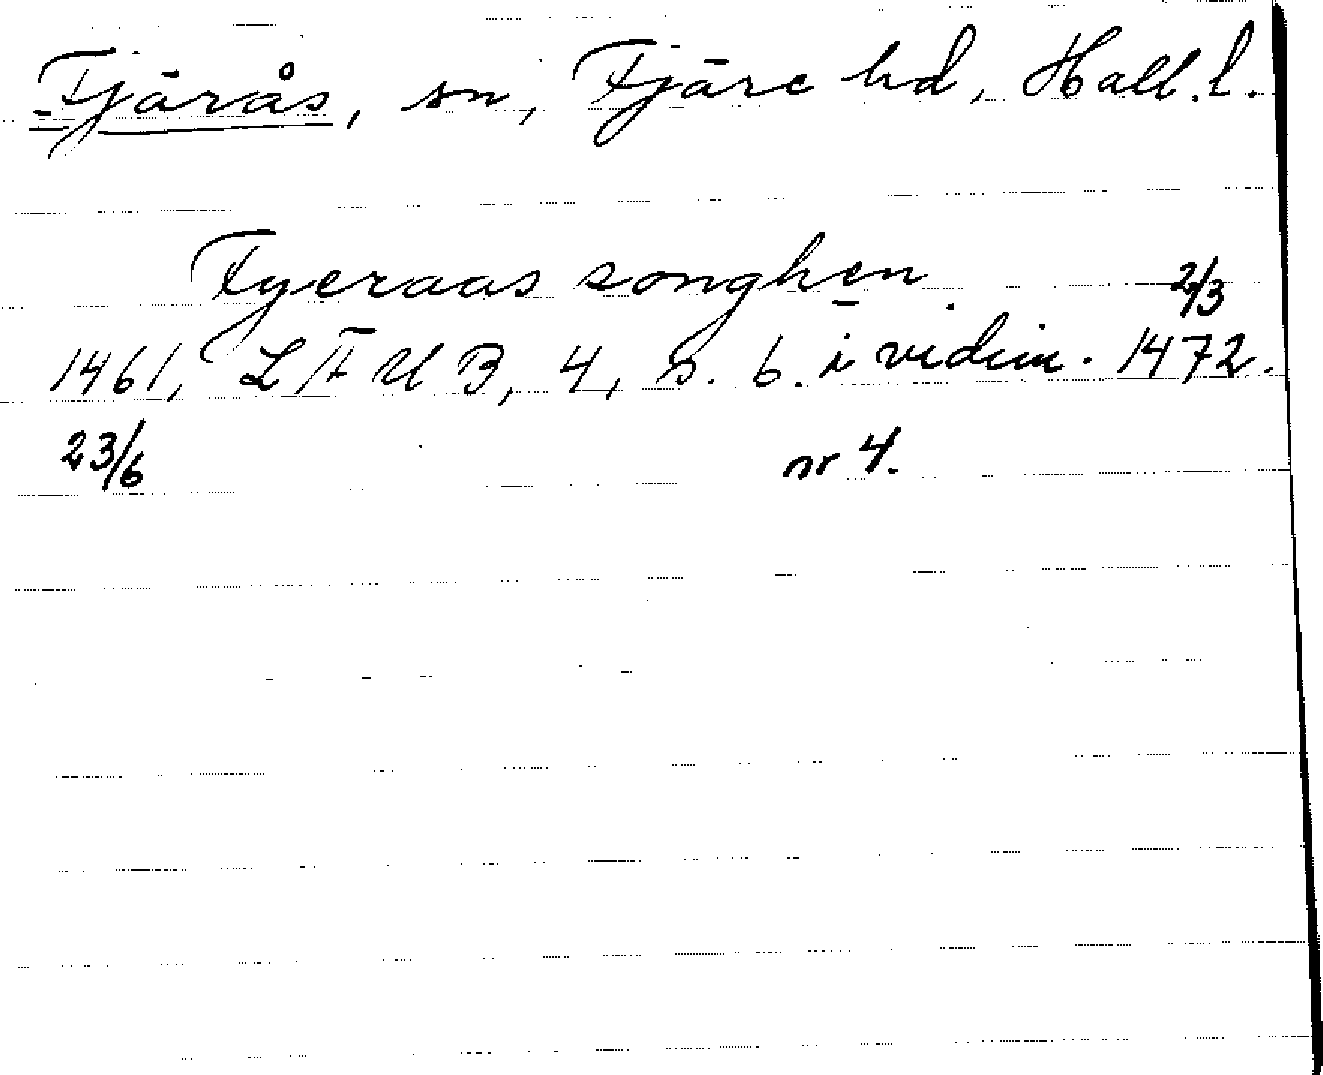 Fjärås, sn, Fjäre hd, Hall. l.
Fyeraas songhen. 2/3
1461, LÄUB, 4, s. 6. i vidim. 1472.
23/6 nr 4.